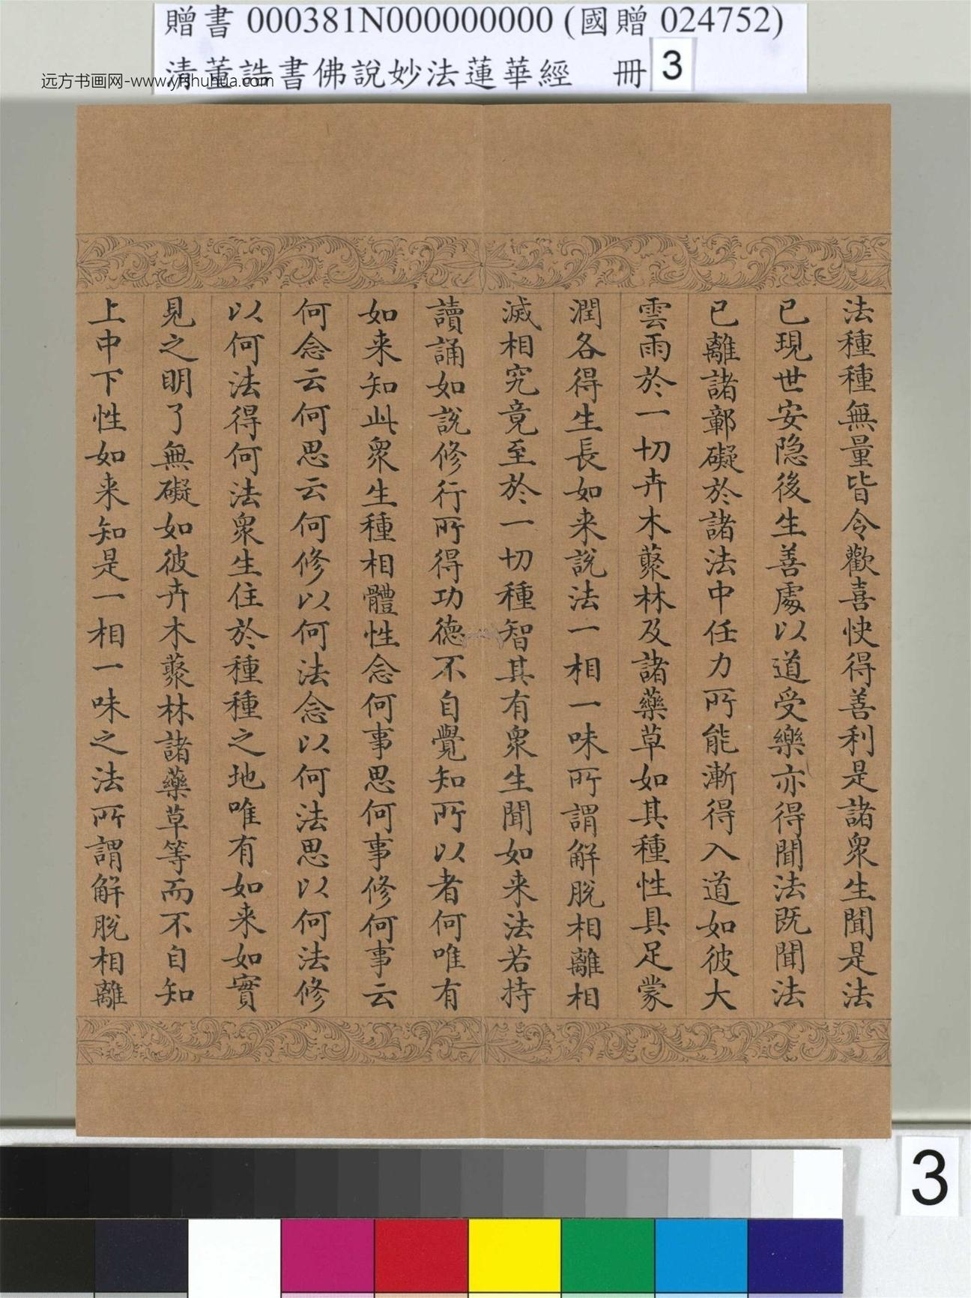 贈書 000381N000000000 (國贈 024752)
清董誥書佛說妙法蓮華經 冊 3
远方书画网-www.yfshuhua.com
法種種無量皆令歡喜快得善利是諸衆生聞是法
已現世安隐後生善處以道受樂亦得聞法既聞法
已離諸鄣礙於諸法中任力所能漸得入道如彼大
雲雨於一切卉木藂林及諸藥草如其種性具足蒙
潤各得生長如来說法一相一味所謂解脫相離相
滅相究竟至於一切種智其有衆生聞如来法若持
讀誦如說修行所得功德不自覺知所以者何唯有
如来知此衆生種相體性念何事思何事修何事云
何念云何思云何修以何法念以何法思以何法修
以何法得何法衆生住於種種之地唯有如来如實
見之明了無礙如彼卉木藂林諸藥草等而不自知
上中下性如来知是一相一味之法所謂解脫相離
3